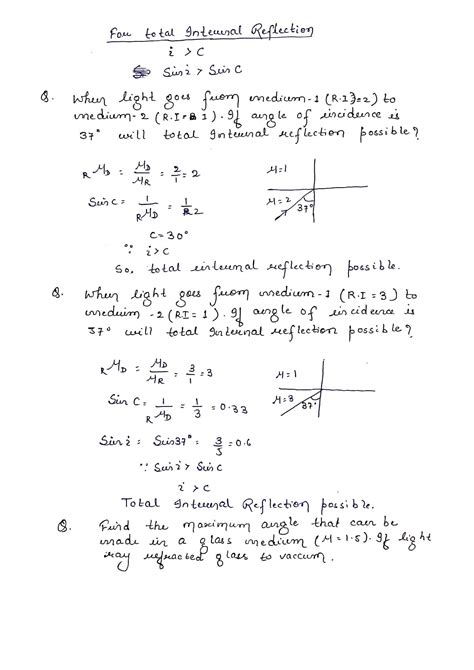 For total Internal Reflection
i > C
Sin i > Sin C
Q. When light goes from medium-1 (R.I = 2) to
medium-2 (R.I = 1). If angle of incidence is
37° will total Internal reflection possible?
RμD = μD/μR = 2/1 = 2
μ=1
μ=2 37°
Sin C = 1/RμD = 1/2
C = 30°
∵ i > C
So, total internal reflection possible.
Q. When light goes from medium-1 (R.I = 3) to
medium-2 (RI = 1). If angle of incidence is
37° will total Internal reflection possible?
RμD = μD/μR = 3/1 = 3
μ=1
μ=3 37°
Sin C = 1/RμD = 1/3 = 0.33
Sin i = Sin 37° = 3/5 = 0.6
∵ Sin i > Sin C
i > C
Total Internal Reflection possible.
Q. Find the maximum angle that can be
made in a glass medium (μ = 1.5). If light
ray refracted glass to vaccum.